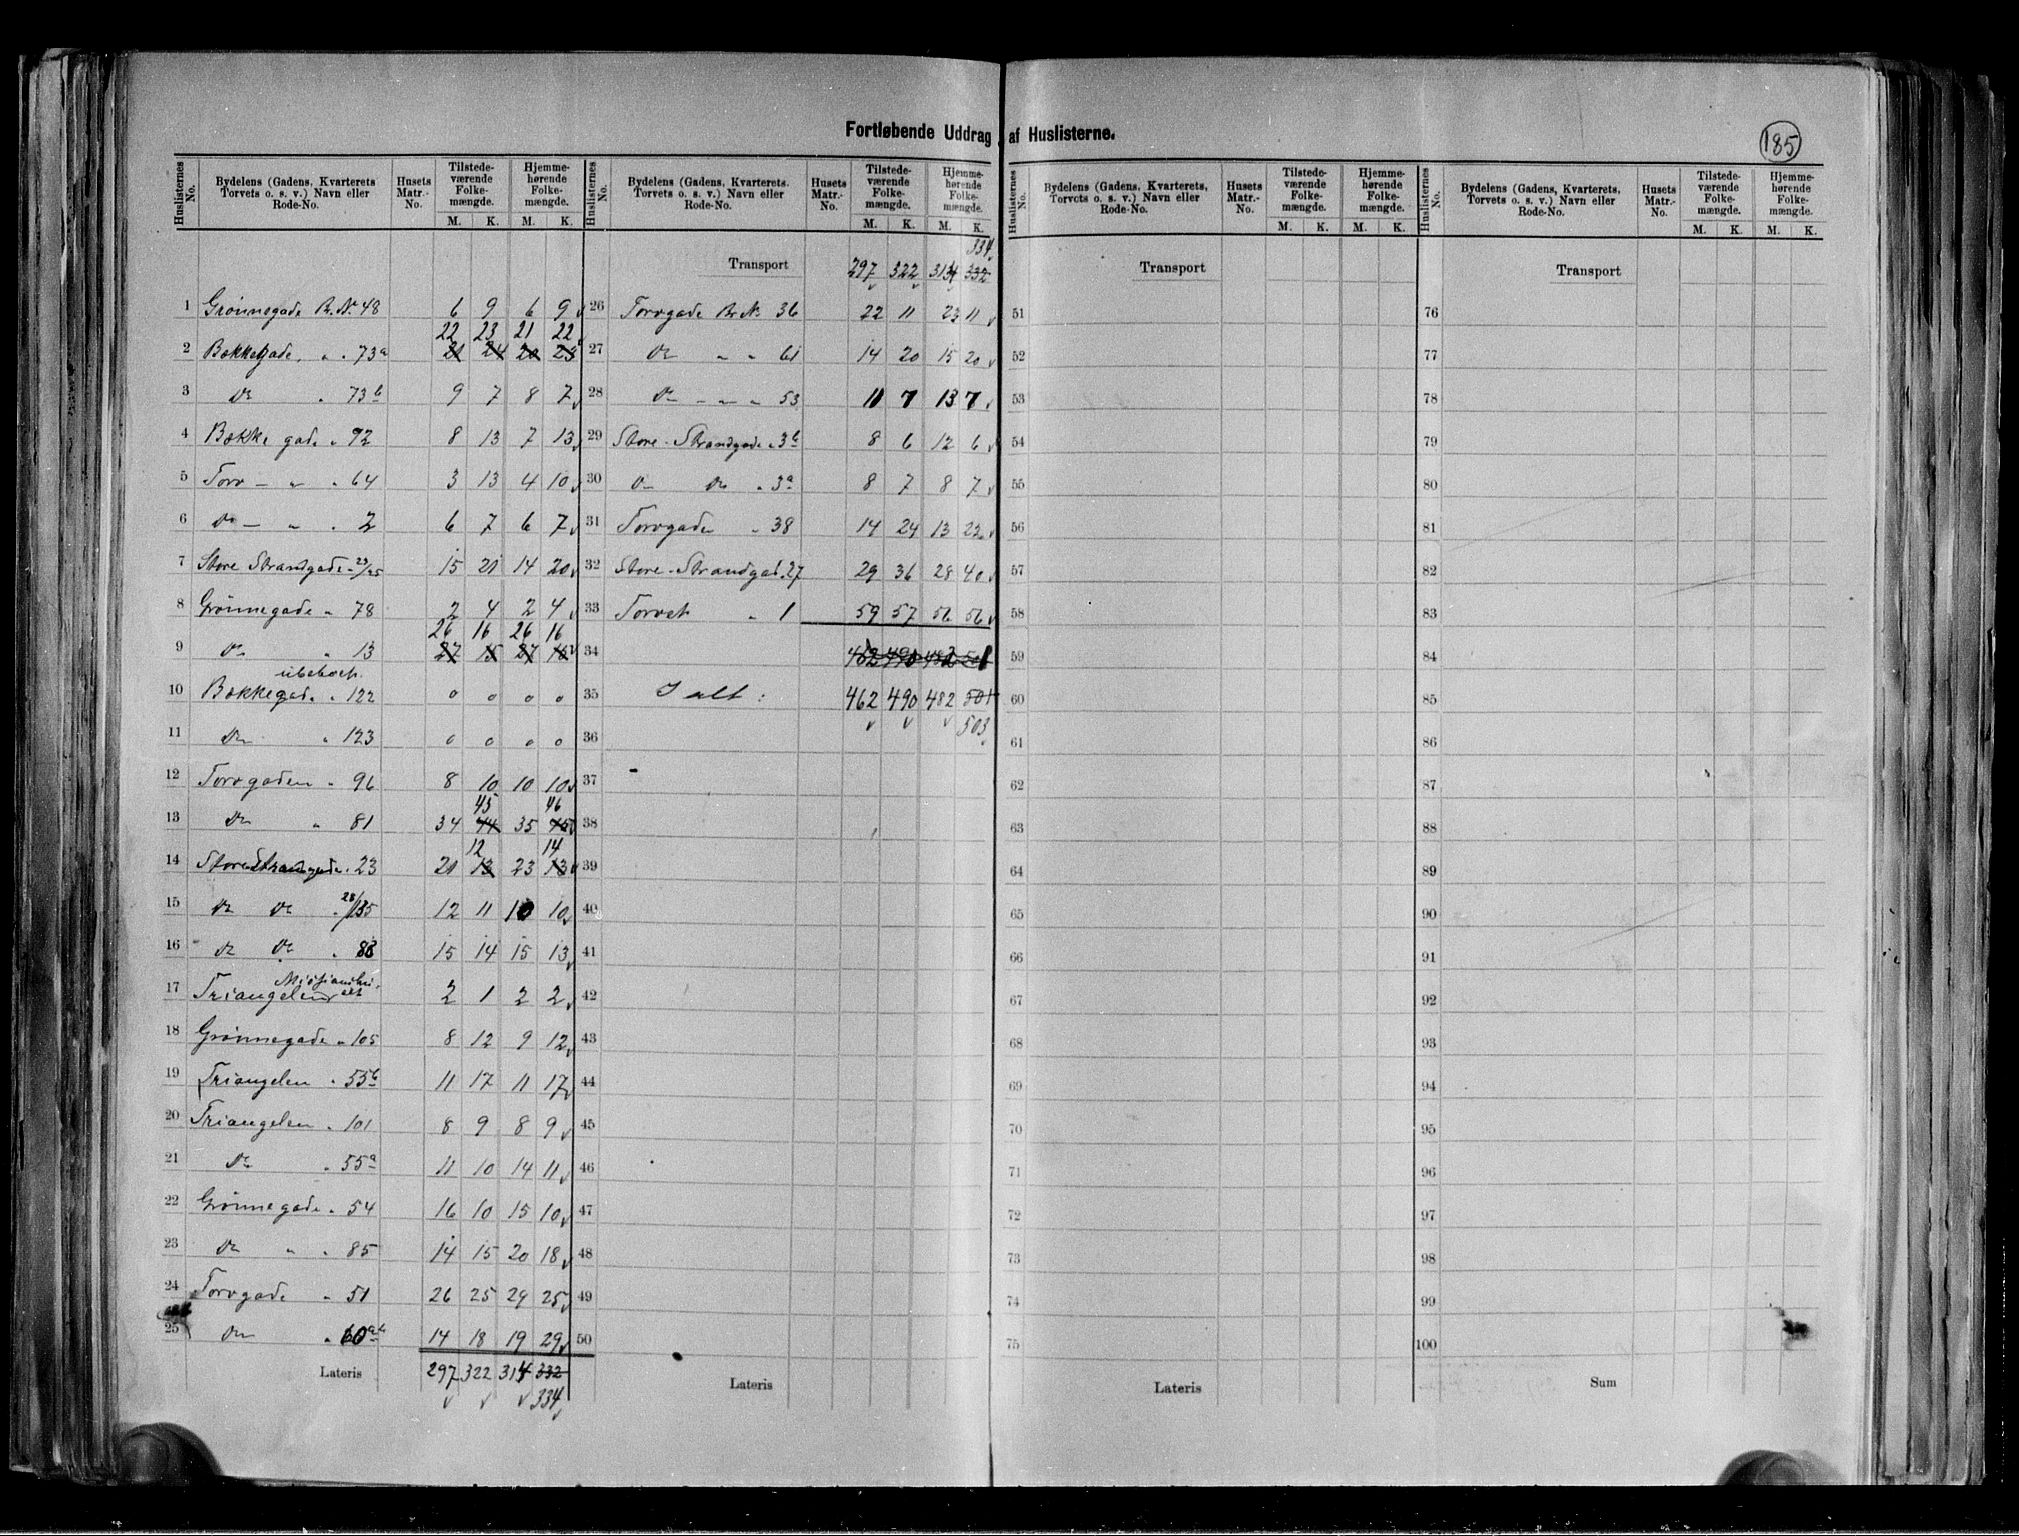 Fortløbende Uddrag af Huslisterne.
185
Huslisternes No. | Bydelens (Gadens, Kvarterets Torvets o. s. v.) Navn eller Rode-No. | Husets Matr.-No. | Tilstedeværende Folkemængde. M. K. | Hjemmehørende Folkemængde. M. K.
1 Grønnegade Br. Nr. 48 6 9 6 9
22 23 21 22
2 Bækkegade " " 73a 21 24 20 23
3 Do " 73b 9 7 8 7
4 Bække gade " 92 8 13 7 13
5 Torv — " " 64 3 13 4 10
6 Do — " " 2 6 7 6 7
7 Store Strandgade " 23/25 15 21 14 20
8 Grønnegade " 78 2 4 2 4
26 16 26 16
9 Do " 13 27 15 27 15
ubeboet
10 Bækkegad. " 122 0 0 0 0
11 Do " 123 0 0 0 0
12 Torvgaden " 96 8 10 10 10
45 46
13 Do " 81 34 44 35 45
12 14
14 Store Strandgade " 23 21 13 23 13
15 Do Do " 28/135 12 11 10 10
16 Do Do " 88 15 14 15 13
17 Triangelen 2 1 2 2
18 Grønnegade " 105 8 12 9 12
19 Triangelen " 55b 11 17 11 17
20 Triangelen " 101 8 9 8 9
21 Do " 55a 11 10 14 11
22 Grønnegade " 54 16 10 15 10
23 Do " " 85 14 15 20 18
24 Torvgade " 51 26 25 29 25
25 Do " 60ab 14 18 19 29
Lateris 297 322 314 332
334
Huslisternes No. | Bydelens (Gadens, Kvarterets. Torvets o. s. v.) Navn eller Rode-No. | Husets Matr.-No. | Tilstedeværende Folkemængde. M. K. | Hjemmehørende Folkemængde. M. K.
334
Transport 297 322 314 332
26 Torvgade Br. Nr. 36 22 11 23 11
27 Do " " 61 14 20 15 20
28 Do " " " 53 11 7 13 7
29 Store-Strandgade " 3b 8 6 12 6
30 Do Do " 3a 8 7 8 7
31 Torvgade " 38 14 24 13 22
32 Store-Strandgad. 27 29 36 28 40
33 Torvet " 1 59 57 56 56
34 462 490 482 501
35 I alt: 462 490 482 501
503
36
37
38
39
40
41
42
43
44
45
46
47
48
49
50
Lateris
Huslisternes No. | Bydelens (Gadens, Kvarterets, Torvets o. s. v.) Navn eller Rode-No. | Husets Matr.-No. | Tilstedeværende Folkemængde. M. K. | Hjemmehørende Folkemængde. M. K.
Transport
51
52
53
54
55
56
57
58
59
60
61
62
63
64
65
66
67
68
69
70
71
72
73
74
75
Lateris
Huslisternes No. | Bydelens (Gadens, Kvarterets, Torvets o. s. v.) Navn eller Rode-No. | Husets Matr.-No. | Tilstedeværende Folkemængde. M. K. | Hjemmehørende Folkemængde. M. K.
Transport
76
77
78
79
80
81
82
83
84
85
86
87
88
89
90
91
92
93
94
95
96
97
98
99
100
Sum